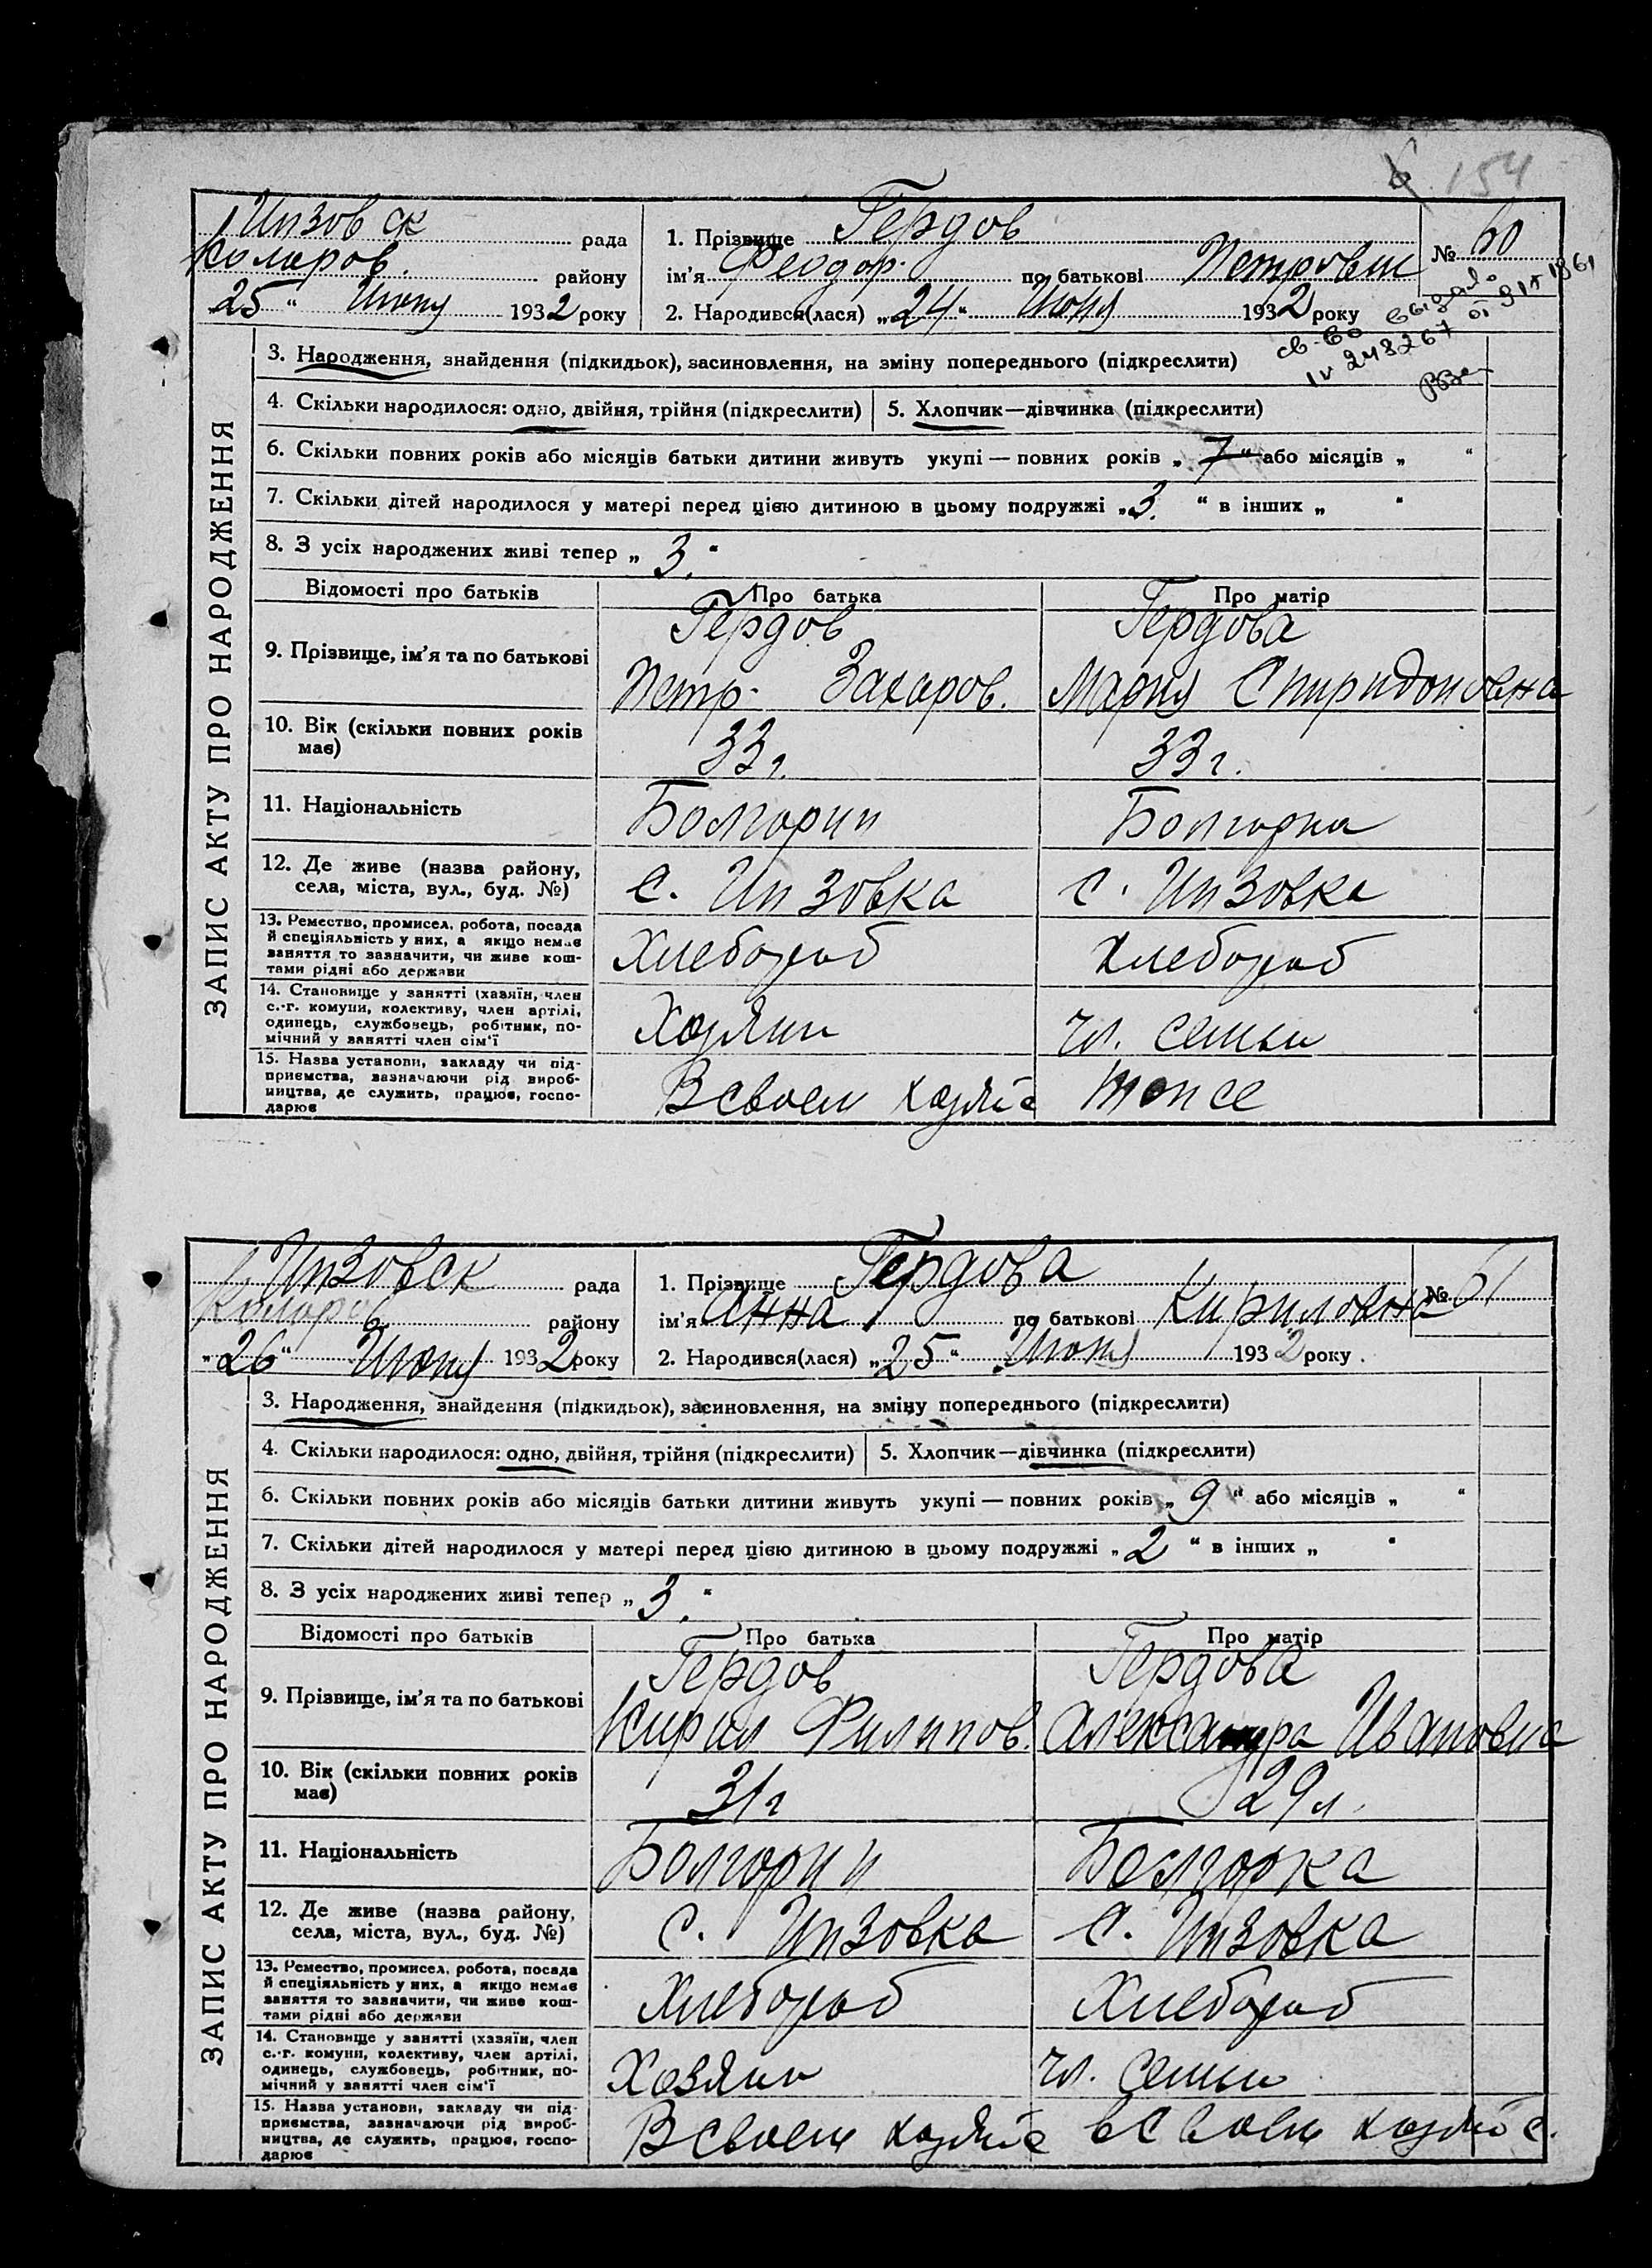 154
Инзовск рада
Коларов. району
25 “ Июня 1932 року
1. Прізвище Гердов
ім’я Феодор. по батькові Петрович
2. Народився(лася) „24“ Июня 1932 року
№ 60
св-во выдано
IV 248267 01 91 1961
ЗАПИС АКТУ ПРО НАРОДЖЕННЯ
3. Народження, знайдення (підкидьок), засиновлення, на зміну попереднього (підкреслити)
4. Скільки народилося: одно, двійня, трійня (підкреслити) 5. Хлопчик—дівчинка (підкреслити)
6. Скільки повних років або місяців батьки дитини живуть укупі — повних років „ 7 “ або місяців „ “
7. Скільки дітей народилося у матері перед цією дитиною в цьому подружжі „3. “ в інших „ “
8. З усіх народжених живі тепер „ 3. “
Відомості про батьків Про батька Про матір
9. Прізвище, ім’я та по батькові
Гердов Гердова
Петр. Захаров. Мария Спиридоновна
10. Вік (скільки повних років
має)
33 г. 33 г.
11. Національність Болгарин Болгарка
12. Де живе (назва району,
села, міста, вул., буд. №)
с. Инзовка с. Инзовка
13. Ремество, промисел, робота, посада
й спеціяльність у них, а якщо немає
заняття то зазначити, чи живе кош-
тами рідні або держави
Хлебороб Хлебороб
14. Становище у занятті (хазяїн, член
с.-г. комуни, колективу, член артілі,
одинець, службовець, робітник, по-
мічний у занятті член сім’ї
Хозяин чл. семьи
15. Назва установи, закладу чи під-
приємства, зазначаючи рід вироб-
ництва, де служить, працює, госпо-
дарює
В своем хозяйс тоже
Инзовск рада
Коларов. району
„26“ Июня 1932 року
1. Прізвище Гердова
ім’я Анна по батькові Кириловна
2. Народився(лася) „25“ Июня 1932 року
№ 61
ЗАПИС АКТУ ПРО НАРОДЖЕННЯ
3. Народження, знайдення (підкидьок), засиновлення, на зміну попереднього (підкреслити)
4. Скільки народилося: одно, двійня, трійня (підкреслити) 5. Хлопчик—дівчинка (підкреслити)
6. Скільки повних років або місяців батьки дитини живуть укупі — повних років „ 9 “ або місяців „ “
7. Скільки дітей народилося у матері перед цією дитиною в цьому подружжі „2 “ в інших „ “
8. З усіх народжених живі тепер „3. “
Відомості про батьків Про батька Про матір
9. Прізвище, ім’я та по батькові
Гердов Гердова
Кирил Филипов. Александра Ивановна
10. Вік (скільки повних років
має)
31 г 29 л.
11. Національність Болгарин Болгарка
12. Де живе (назва району,
села, міста, вул., буд. №)
с. Инзовка с. Инзовка
13. Ремество, промисел, робота, посада
й спеціяльність у них, а якщо немає
заняття то зазначити, чи живе кош-
тами рідні або держави
Хлебороб Хлебороб
14. Становище у занятті (хазяїн, член
с.-г. комуни, колективу, член артілі,
одинець, службовець, робітник, по-
мічний у занятті член сім’ї
Хозяин чл. семьи
15. Назва установи, закладу чи під-
приємства, зазначаючи рід вироб-
ництва, де служить, працює, госпо-
дарює
В своем хозяйс в своем хозяйс.